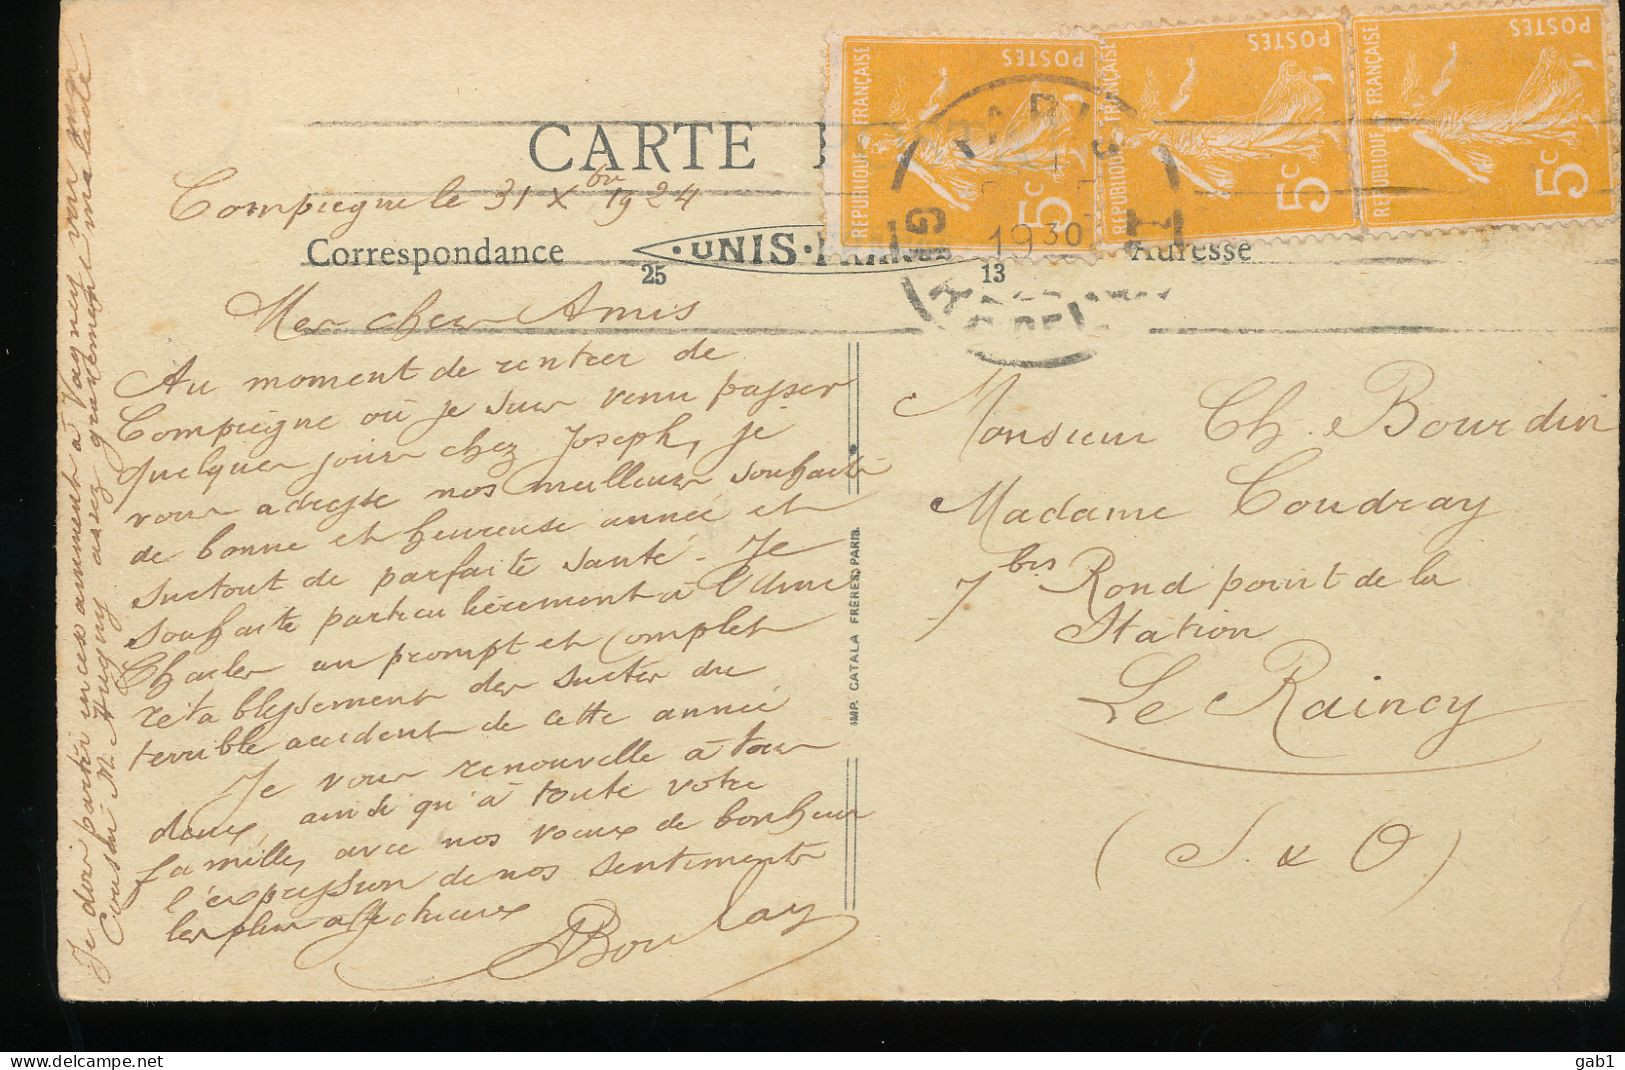 CARTE
POSTES
RÉPUBLIQUE FRANÇAISE
5c
POSTES
RÉPUBLIQUE FRANÇAISE
5c
POSTES
RÉPUBLIQUE FRANÇAISE
5c
PARIS
1930
Compiègne le 31 Xbre 1924
Correspondance
·UNIS·
25
13
Adresse
Mes chers Amis
Au moment de rentrer de
Compiègne où je suis venu passer
quelques jours chez Joseph, je
vous adresse nos meilleurs souhaits
de bonne et heureuse année et
surtout de parfaite santé. Je
souhaite particulièrement à l'ami
Charles un prompt et complet
rétablissement des suites du
terrible accident de cette année
Je vous renouvelle à tous
deux, ainsi qu'à toute votre
famille, avec nos vœux de bonheur
l'expression de nos sentiments
les plus affectueux
Boulay
Je dois partir incessamment à Vagney voir mon
Cousin M. Hugny assez gravement malade
IMP. CATALA FRÈRES, PARIS.
Monsieur Ch. Bourdin
Madame Coudray
7bis Rond point de la
Station
Le Raincy
(S. & O)
gab1